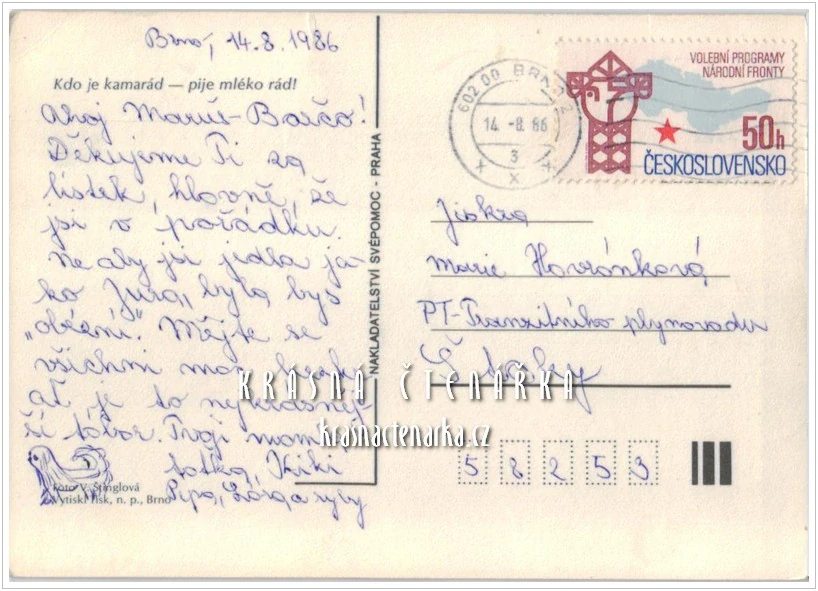 Brno, 14.8.1986
Kdo je kamarád — pije mléko rád!
Ahoj Maruš-Barčo!
Děkujeme Ti za
lístek, hlavně, že
jsi v pořádku.
Ne aby jsi jedla ja-
ko Jura, byla bys
"obézní". Mějte se
všichni moc hezky
ať je to nejkrásněj-
ší tábor. Tvoji mamka,
taťka, Kiki
Pepa, Žorga ryby
Foto V. Stinglová
Vytiskl Tisk, n. p., Brno
NAKLADATELSTVÍ SVÉPOMOC - PRAHA
602 00 BRNO 2
14. -8. 86
3
x x x
VOLEBNÍ PROGRAMY
NÁRODNÍ FRONTY
50h
ČESKOSLOVENSKO
Jiskra
Marie Havránková
PT-Tranzitního plynovodu
KRÁSNÁ ČTENÁŘKA
krasnactenarka.cz
58253